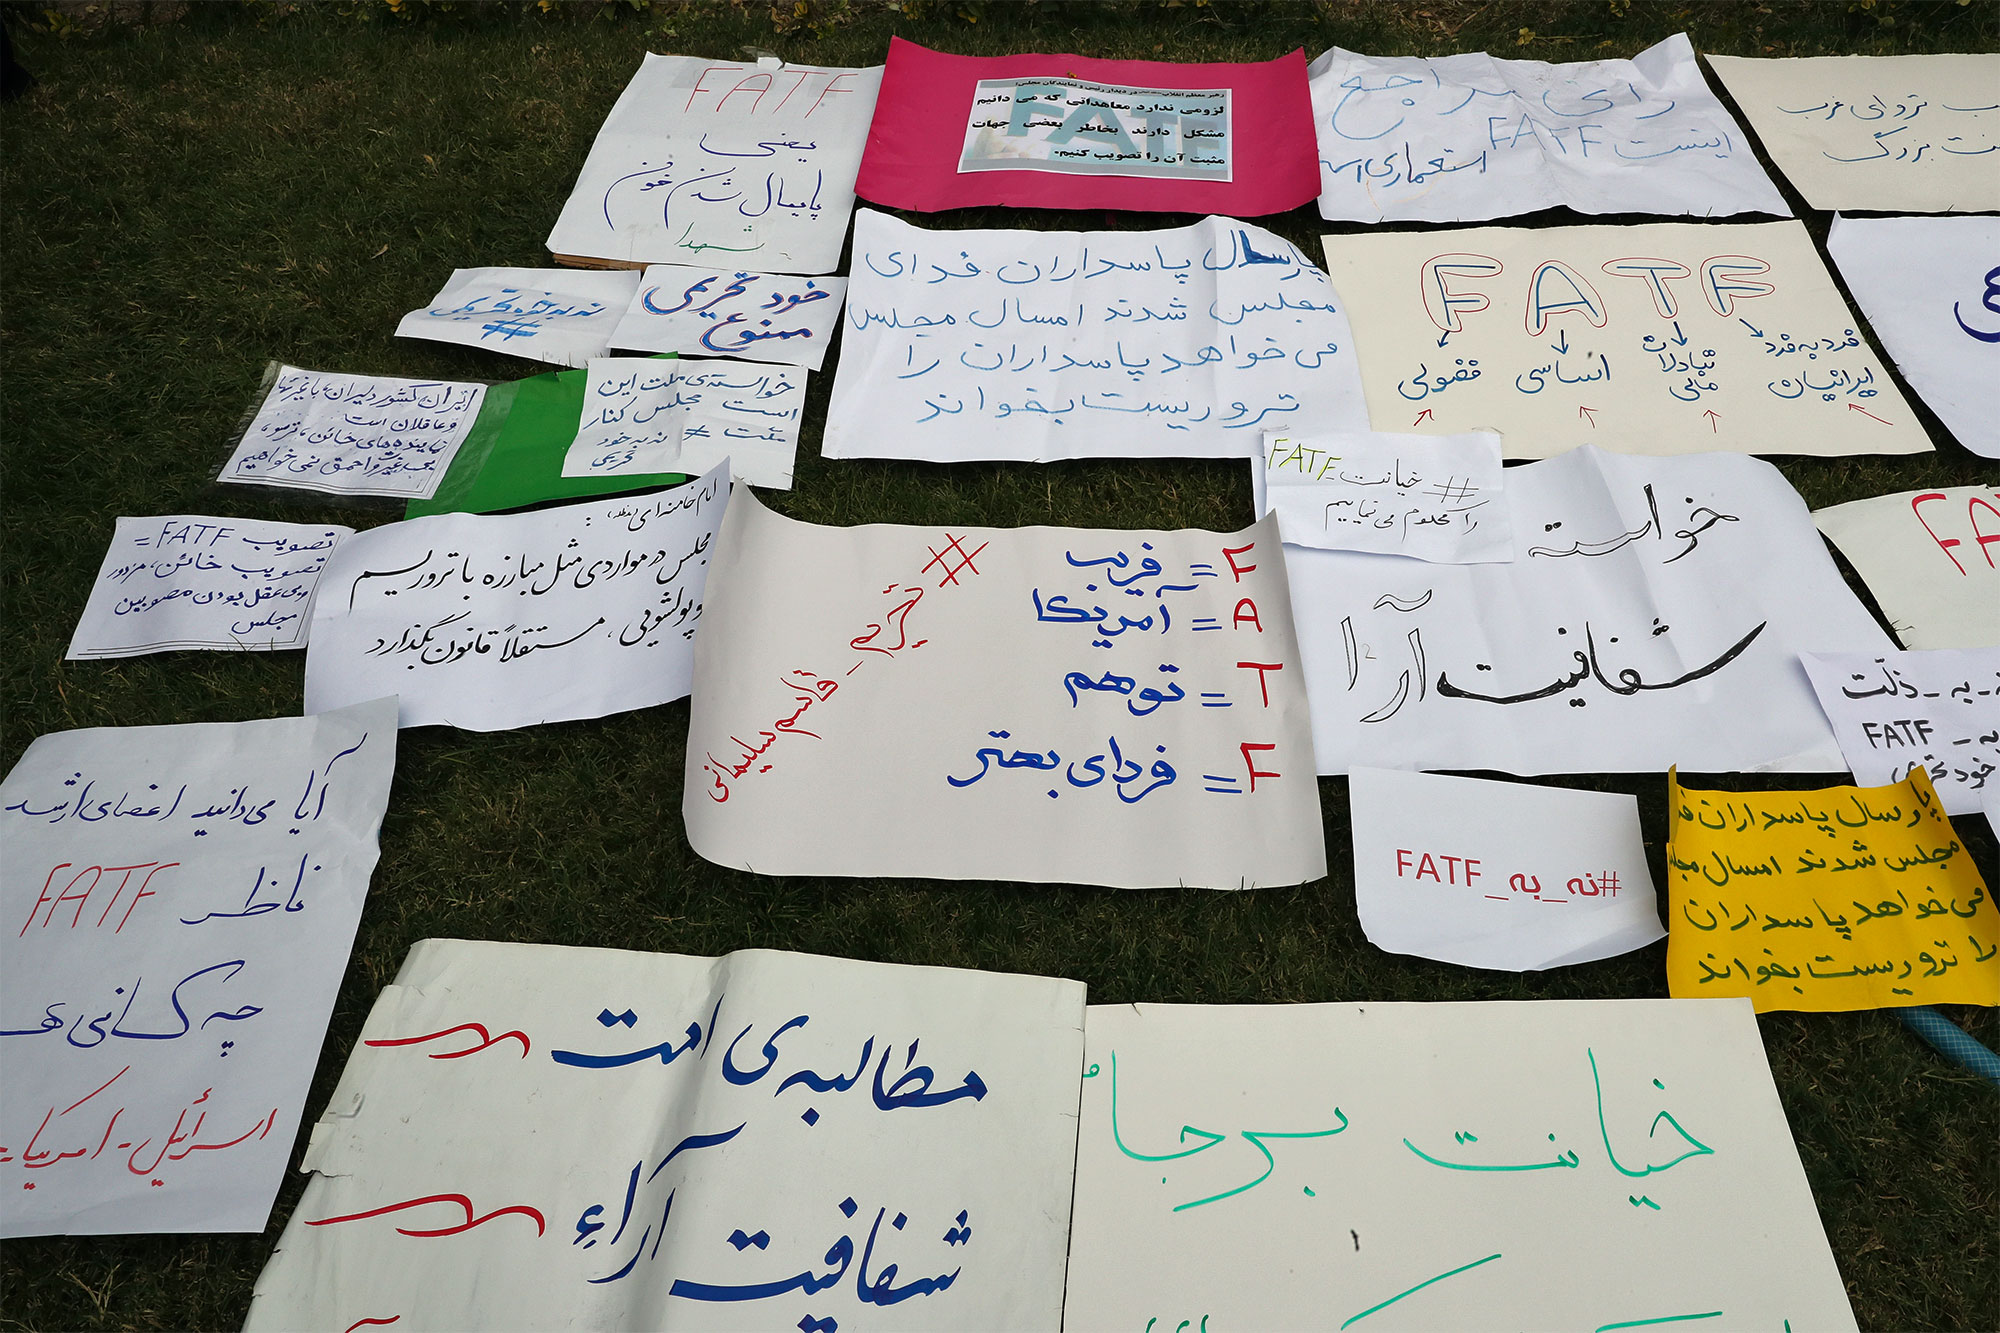 FATF
یعنی
پایمال شدن خون
شهدا
رهبر معظم انقلاب در دیدار رئیس و نمایندگان مجلس:
لزومی ندارد معاهداتی که می دانیم
مشکل دارند بخاطر بعضی جهات
مثبت آن را تصویب کنیم.
FATF
رأی
اینست FATF
استعماری
ب نزد ای غرب
ت بزرگ
نه به خود تحریمی
#
خود تحریمی
ممنوع
پارسال پاسداران فدای
مجلس شدند امسال مجلس
می خواهد پاسداران را
تروریست بخواند
FATF
فضولی
اساسی
تبادلات
مالی
فرد به فرد
ایرانیان
ایران کشور دلیران، باغیرتها
و عاقلان است
نماینده های خائن، ترسو،
بی غیرت و احمق نمی خواهیم
خواسته ی ملت این
است مجلس کنار
ملت # نه به خود
تحریمی
# خیانت_FATF
را محکوم می نماییم
تصویب FATF =
تصویب خائن، مزدور
و بی عقل بودن مصوبین
مجلس
امام خامنه ای (مدظله):
مجلس در مواردی مثل مبارزه با تروریسم
و پولشویی، مستقلاً قانون بگذارد
F = فریب
A = آمریکا
T = توهم
F = فردای بهتر
# تحریم_قاسم سلیمانی
خواسته
شفافیت آرا
FA
نه_به_ذلّت
به_FATF
خود تحریمی
#نه_به_FATF
پارسال پاسداران فد
مجلس شدند امسال مجل
می خواهد پاسداران
را تروریست بخواند
آیا می دانید اعضای ارشد
ناظر FATF
چه کسانی
اسرائیل - امریکا -
مطالبه ی امت
شفافیت آراء
خیانت برجام